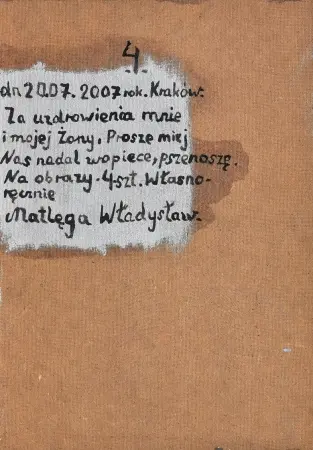 4.
dn 20.07.2007 rok. Kraków.
Za uzdrowienia mnie
i mojej Żony, Proszę miej
Nas nadal wopiece, pszenoszę.
Na obrazy-4szt. Własno-
ręcznie
Matlęga Władysław.